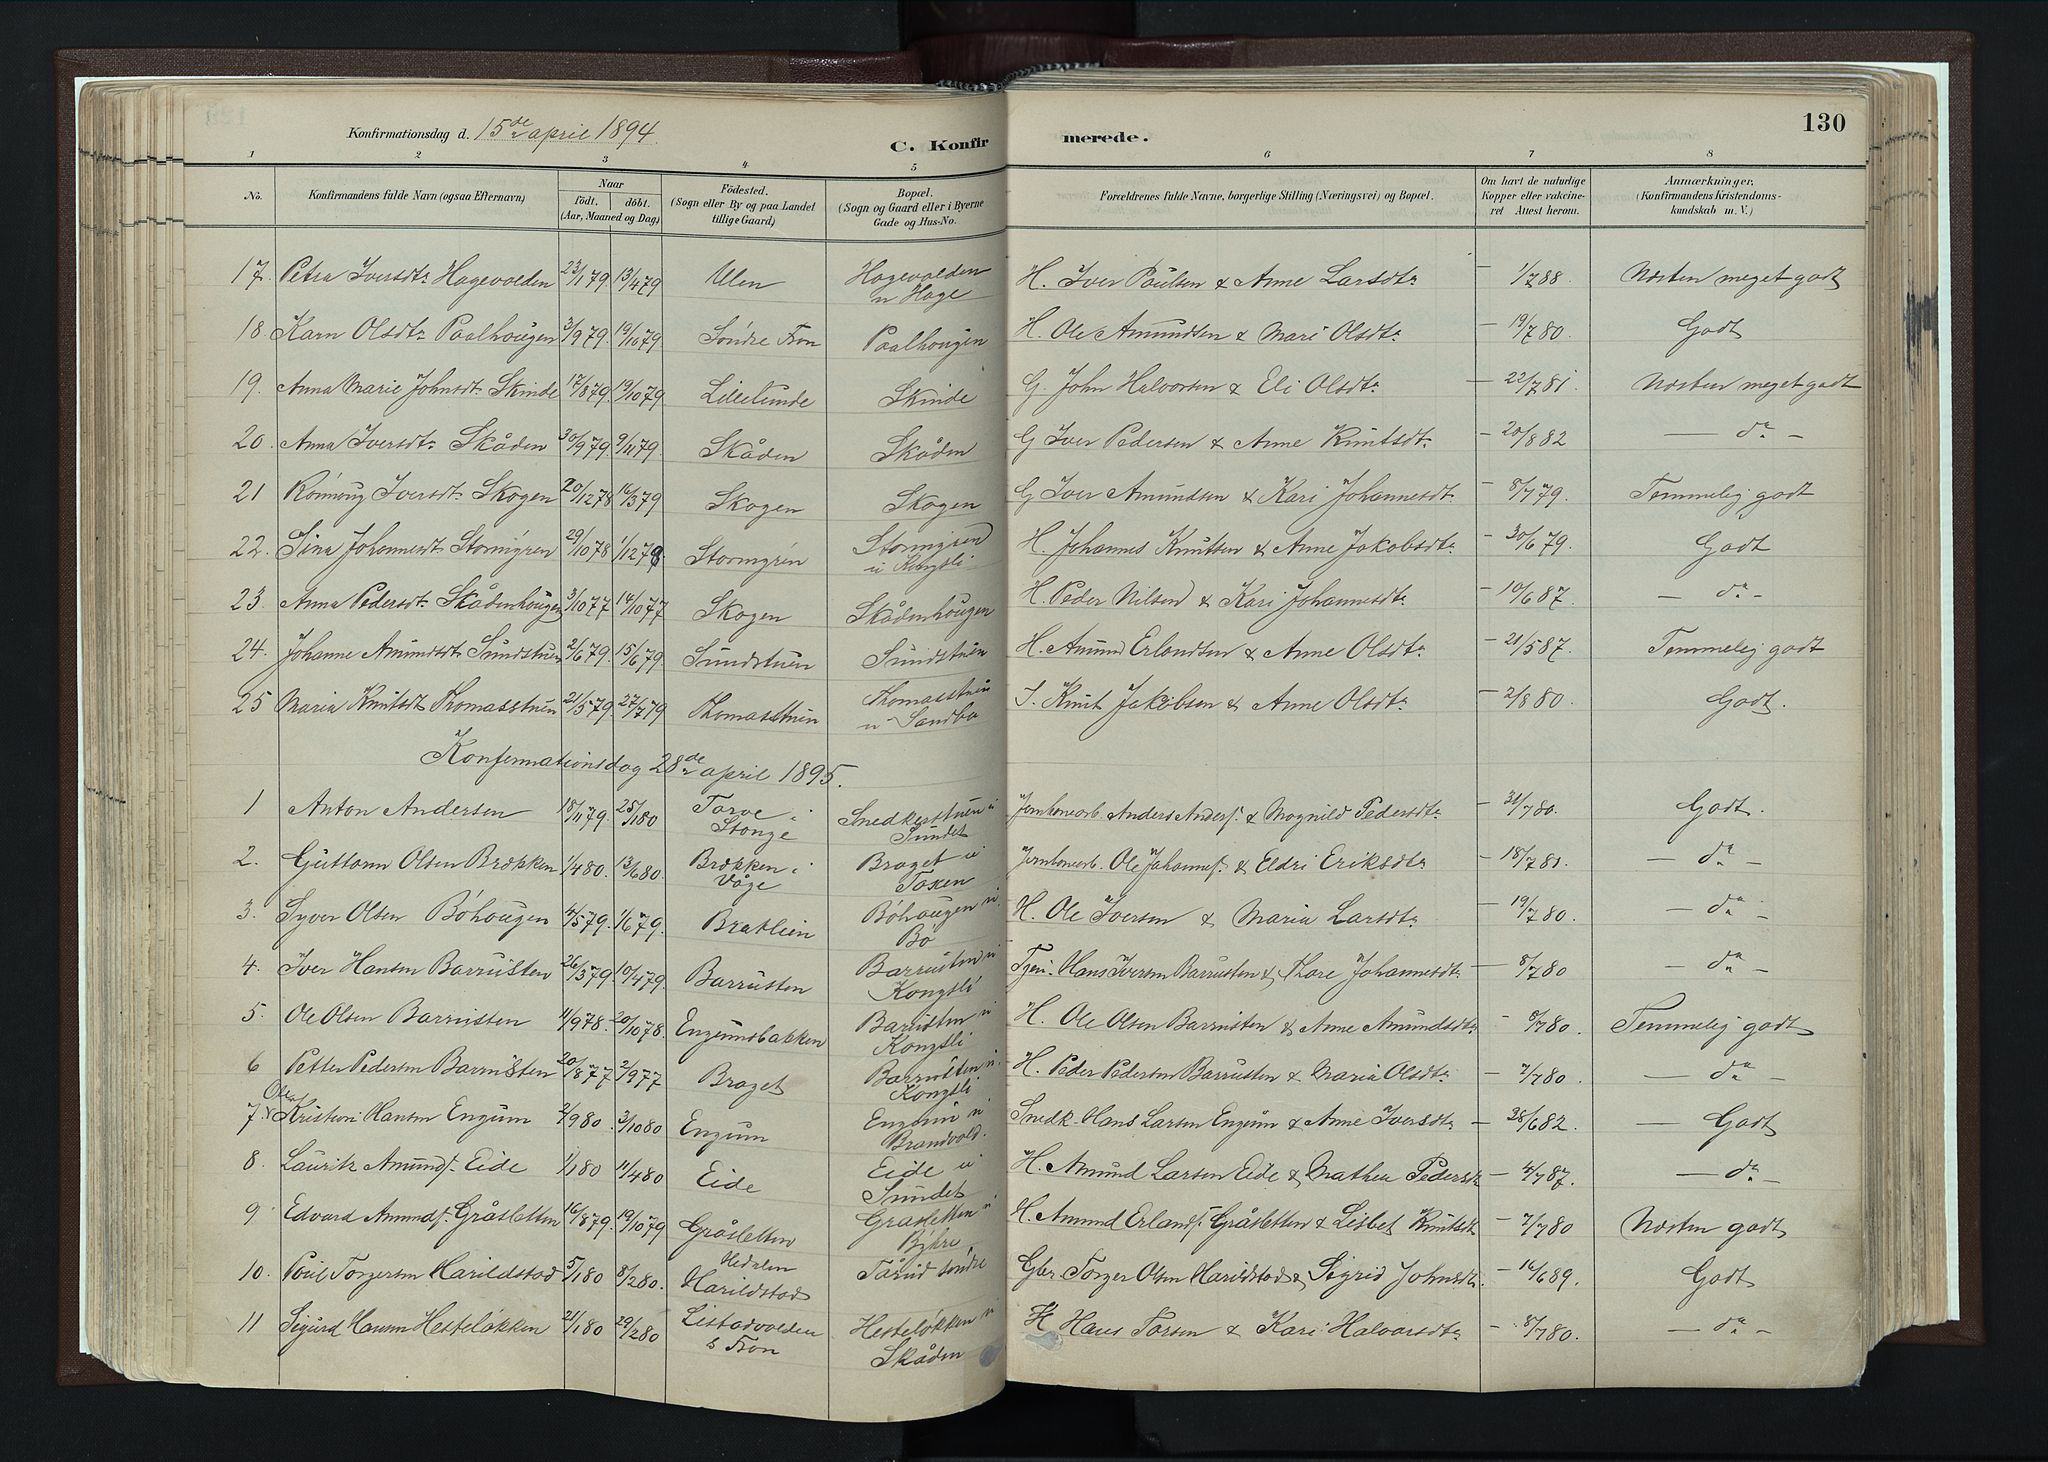 130
Konfirmationsdag d. 15de april 1894.
C. Konfirmerede.
1 2 3 4 5 6 7 8
No. Konfirmandens fulde Navn (ogsaa Efternavn) Naar födt. döbt. (Aar, Maaned og Dag) Födested. (Sogn eller By og paa Landet tillige Gaard) Bopæl. (Sogn og Gaard eller i Byerne Gade og Hus-No. Forældrenes fulde Navne, borgerlige Stilling (Næringsvei) og Bopæl. Om havt de naturlige Kopper eller vakcineret Attest herom. Anmærkninger. (Konfirmandens Kristendomskundskab m. V.)
17. Petra Iversdtr Hagevolden 23/1 79 13/4 79 Ulen Hagevolden u Hage H. Iver Poulsen & Anne Larsdtr — 1/7 88 Næsten meget godt
18. Karn Olsdtr Paalhougen 3/9 79 19/10 79 Söndre Fron Paalhougen H. Ole Amundsen & Mari Olsdtr — 19/7 80. Godt
19. Anna Marie Johnsdt. Skinde 17/8 79. 19/10 79 Lillelunde Skinde G. John Halvorsen & Eli Olsdtr — 22/7 81. Næsten meget godt
20. Anna Iversdtr Skåden 30/9 79. 9/11 79 Skåden Skåden G Iver Pedersen & Anne Knutsdtr — 20/8 82 — do —
21 Rönnoug Iversdt. Skogen 20/12 78 16/3 79 Skogen Skogen G Iver Amundsen & Kari Johannesdtr — 8/7 79. Temmelig godt
22. Sina Johannesdt Stormyren 29/10 78 1/12 78 Stormyren Stormyren u Kongsli H. Johannes Knutsen & Anne Jakobsdtr — 30/6 79. Godt
23. Anna Pedersdt. Skådenhougen 3/10 77 14/10 77 Skogen Skådenhougen H. Peder Nilsen & Kari Johannesdtr — 10/6 87. — do —
24. Johanne Amundsdt. Sundstuen 2/6 79. 15/6 79 Sundstuen Sundstuen H. Amund Erlandsen & Anne Olsdtr — 21/5 87. Temmelig godt
25 Maria Knutsdt Thomasstuen 21/5 79. 27/7 79 Thomasstuen Thomasstuen u Sandbo I. Knut Jakobsen & Anne Olsdtr — 2/8 80. Godt.
Konfermationsdag 28de april 1895.
1 Anton Andersen 18/11 79. 25/1 80 Torve i Stonge Snedkerstuen u Sundet Jernbanearb. Anders Anders. & Magnild Pedersdtr — 31/7 80. Godt.
2. Guttorm Olsen Brækken 1/4 80. 13/6 80. Brækken i Våge Braget u Toxen Jernbanearb. Ole Johannes. & Eldri Eriksdtr — 18/7 81. — do —
3. Syver Olsen Böhougen 4/5 79. 1/6 79. Bratlien Böhougen u. Bö H. Ole Iversen & Maria Larsdtr — 19/7 80. — do —
4. Iver Hansen Barrusten 26/3 79. 10/4 79. Barrusten Barrusten u Kongsli Hans Iversen Barrusten & Thore Johannesdtr — 8/7 80 — do —
5. Ole Olsen Barrusten 11/9 78. 20/10 78. Engumsbakken Barrusten u Kongsli H. Ole Olsen Barrusten & Anne Amundsdtr — 8/7 80. Temmelig godt
6 Petter Pedersen Barrusten 20/8 77 2/9 77 Braget Barrusten u. Kongsli H. Peder Pedersen Barrusten & Maria Olsdtr — 7/7 80. — do —
7. Kristian Hansen Engum 2/9 80. 3/10 80 Engum Engum u Brandvold. Snedk. Hans Larsen Engum & Anne Iversdtr — 28/6 82. — Godt
8. Lauritz Amunds. Eide 1/1 80 11/4 80 Eide Eide u Sundet H. Amund Larsen Eide & Mathea Pedersdt — 4/7 87. — do —
9 Edvard Amunds. Gråsletten 16/8 79. 19/10 79 Gråsletten Gråsletten u Bjkre H. Amund Erlands. Gråsletten & Lisbet Knutsdt — 7/7 80 Næsten godt
10. Poul Torgersen Harildstad 5/1 80 8/2 80. Hedalen Harildstad Tårud söndre Gbr. Torger Olsen Harildstad & Sigrid Johnsdt. — 16/6 89. Godt
11 Sigurd Hansen Hesteløkken 21/1 80 29/2 80 Listadvolden S Fron Hesteløkken u Skåden H Hans Torsen & Kari Halvorsdtr — 8/7 80. — do —